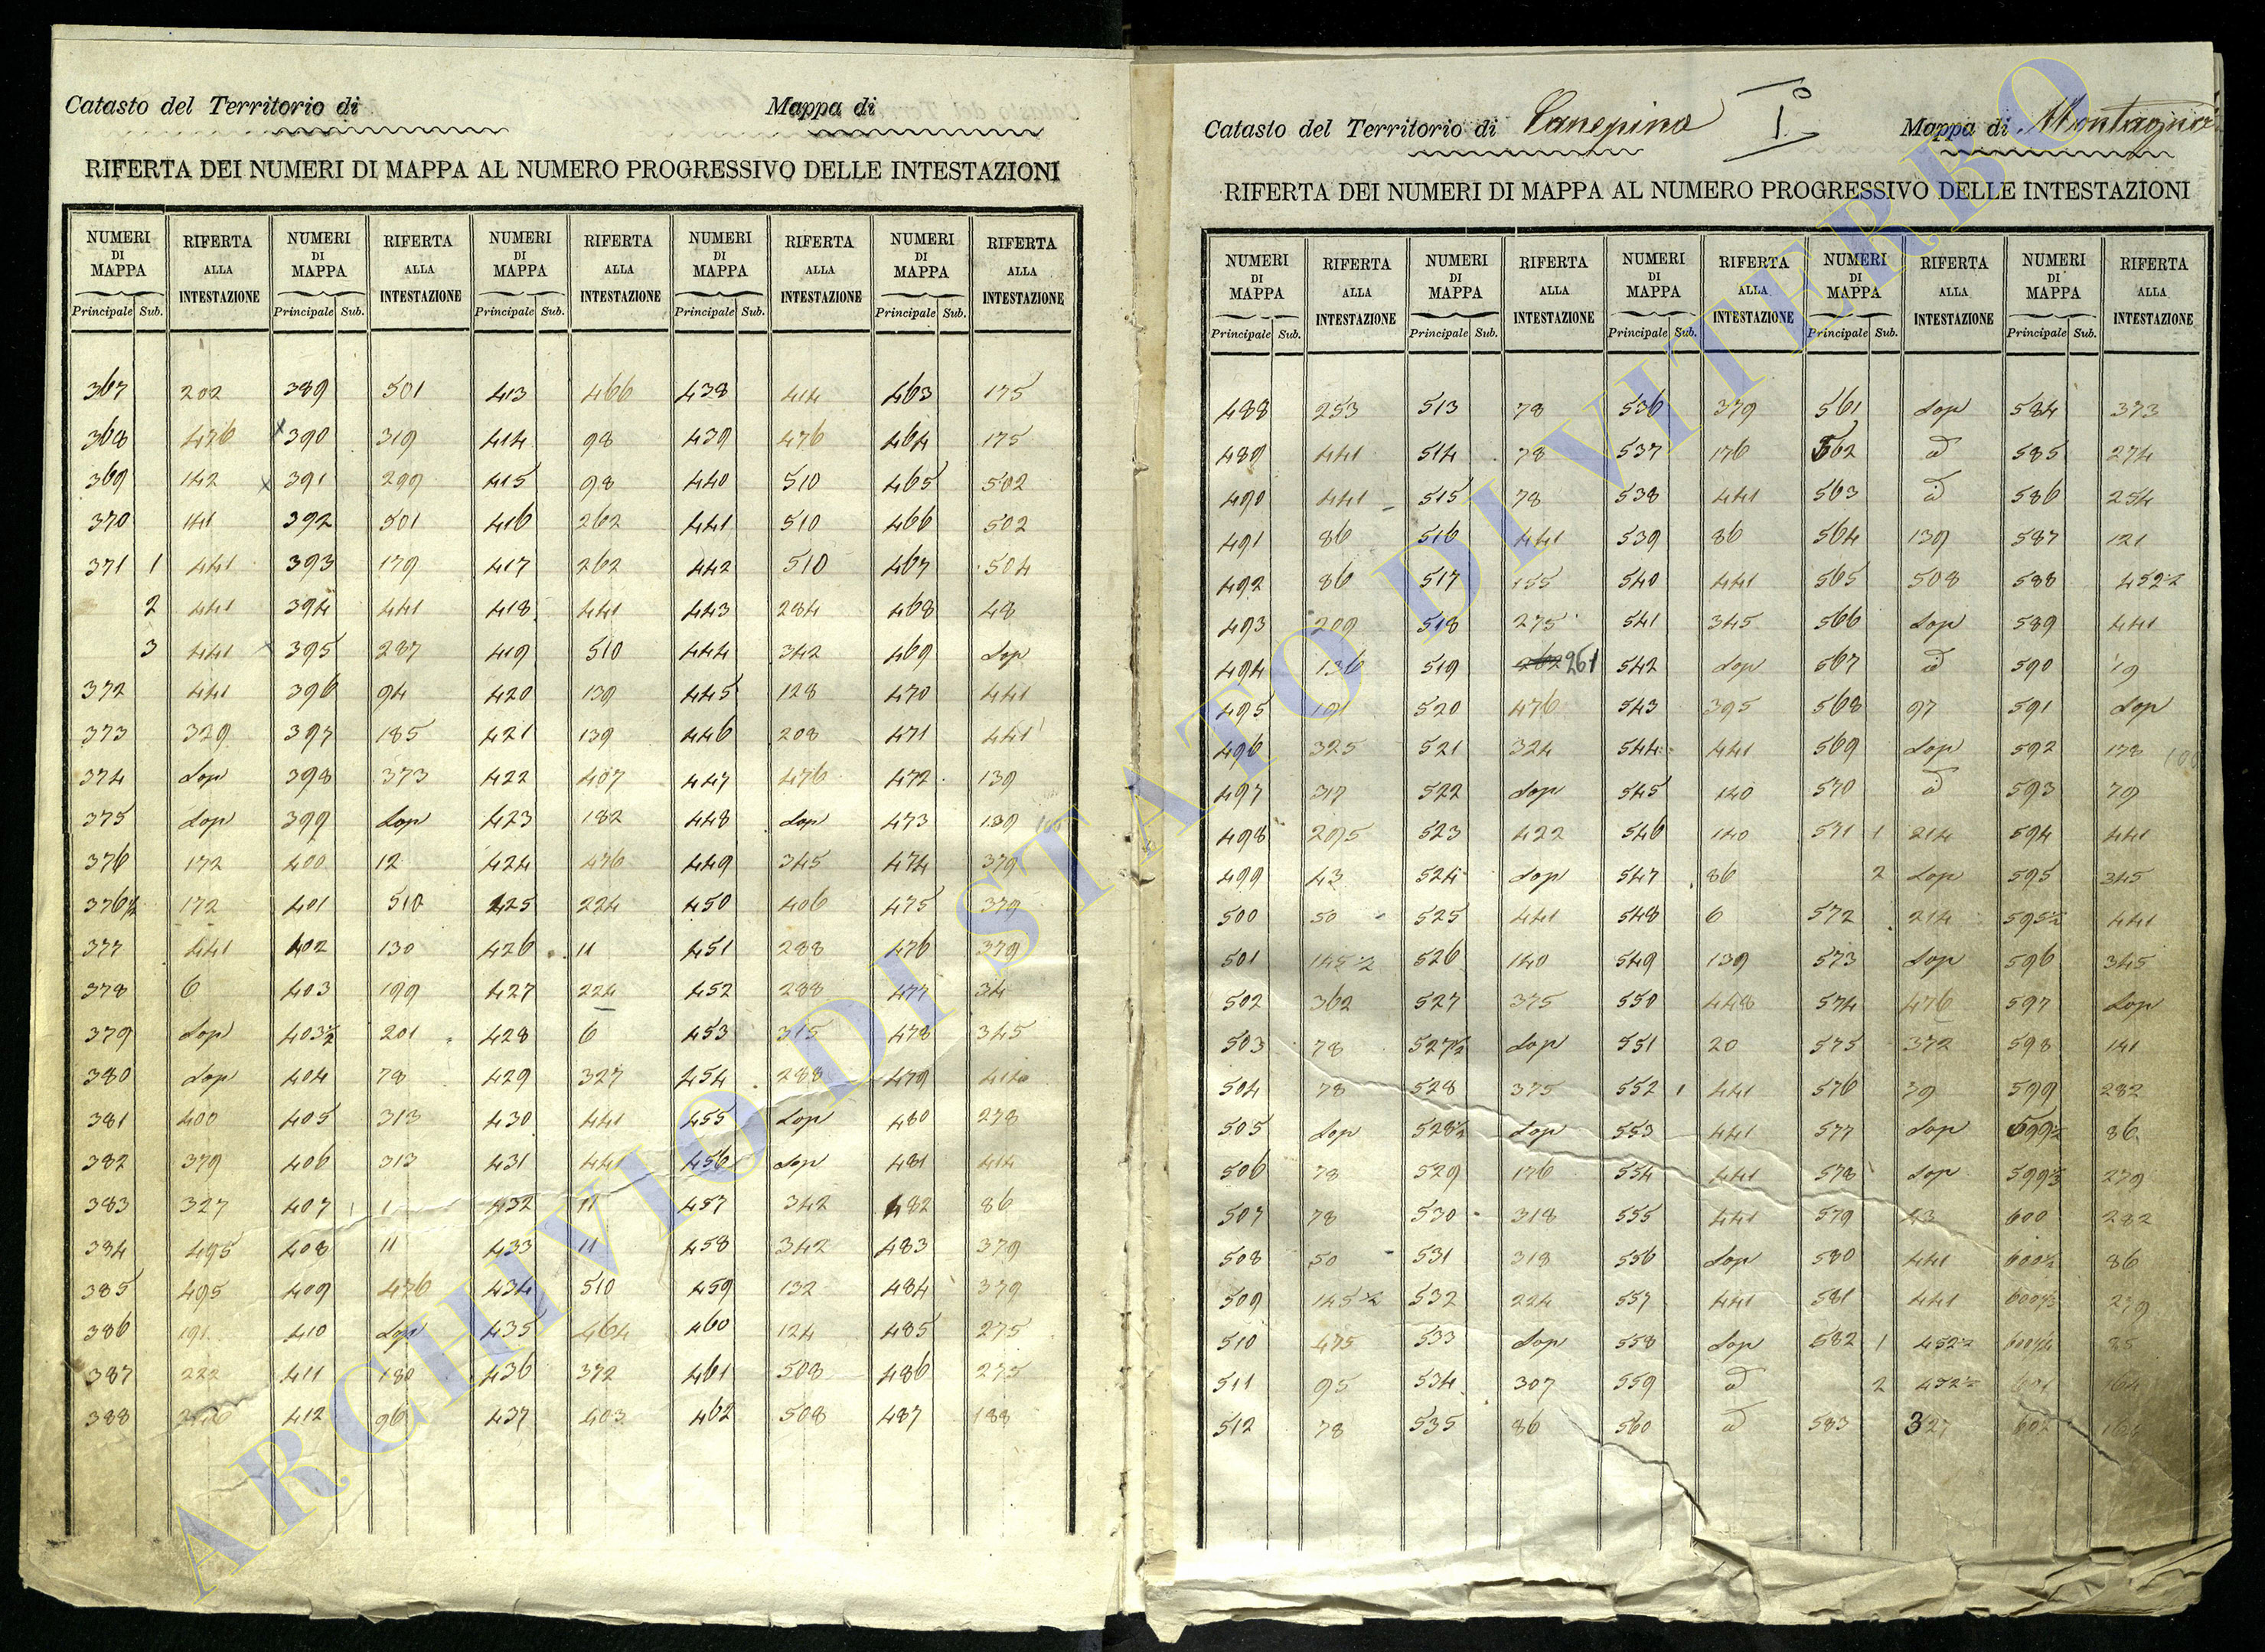 Catasto del Territorio di Mappa di
RIFERTA DEI NUMERI DI MAPPA AL NUMERO PROGRESSIVO DELLE INTESTAZIONI
NUMERI DI MAPPA RIFERTA ALLA INTESTAZIONE NUMERI DI MAPPA RIFERTA ALLA INTESTAZIONE NUMERI DI MAPPA RIFERTA ALLA INTESTAZIONE NUMERI DI MAPPA RIFERTA ALLA INTESTAZIONE NUMERI DI MAPPA RIFERTA ALLA INTESTAZIONE
Principale Sub. Principale Sub. Principale Sub. Principale Sub. Principale Sub.
367 202 389 501 413 466 438 414 463 175
368 476 x 390 319 414 98 439 476 464 175
369 142 x 391 299 415 98 440 510 465 502
370 141 392 501 416 262 441 510 466 502
371 1 441 393 179 417 262 442 510 467 504
2 441 394 441 418 441 443 284 468 48
3 441 x 395 287 419 510 444 342 469 Sop
372 441 396 94 420 139 445 128 470 441
373 329 397 185 421 139 446 208 471 441
374 Sop 398 373 422 407 447 476 472 139
375 Sop 399 Sop 423 182 448 Sop 473 139
376 172 400 12 424 476 449 345 474 379
376½ 172 401 510 425 224 450 406 475 379
377 441 402 130 426 11 451 288 476 379
378 6 403 199 427 224 452 288 477 34
379 Sop 403½ 201 428 6 453 315 478 345
380 Sop 404 78 429 327 454 288 479 414
381 400 405 313 430 441 455 Sop 480 278
382 379 406 313 431 441 456 Sop 481 414
383 327 407 1 432 11 457 342 482 86
384 495 408 11 433 11 458 342 483 379
385 495 409 476 434 510 459 132 484 379
386 191 410 Sop 435 464 460 124 485 275
387 222 411 180 436 372 461 508 486 275
388 412 96 437 403 462 508 487 188
Catasto del Territorio di Canepina I° Mappa di Montagna
RIFERTA DEI NUMERI DI MAPPA AL NUMERO PROGRESSIVO DELLE INTESTAZIONI
NUMERI DI MAPPA RIFERTA ALLA INTESTAZIONE NUMERI DI MAPPA RIFERTA ALLA INTESTAZIONE NUMERI DI MAPPA RIFERTA ALLA INTESTAZIONE NUMERI DI MAPPA RIFERTA ALLA INTESTAZIONE NUMERI DI MAPPA RIFERTA ALLA INTESTAZIONE
Principale Sub. Principale Sub. Principale Sub. Principale Sub. Principale Sub.
488 253 513 78 536 379 561 Sop 584 373
489 441 514 78 537 176 562 d 585 274
490 441 515 78 538 441 563 d 586 254
491 86 516 441 539 86 564 139 587 121
492 86 517 155 540 441 565 508 588 452½
493 209 518 275 541 345 566 Sop 589 441
494 136 519 261 542 Sop 567 d 590 19
495 191 520 476 543 395 568 97 591 Sop
496 325 521 324 544 441 569 Sop 592 178
497 317 522 Sop 545 140 570 d 593 79
498 295 523 422 546 140 571 1 214 594 441
499 43 524 Sop 547 86 2 Sop 595 345
500 50 525 441 548 6 572 214 595½ 441
501 145½ 526 140 549 139 573 Sop 596 345
502 362 527 375 550 448 574 476 597 Sop
503 78 527½ Sop 551 20 575 372 598 141
504 78 528 375 552 1 441 576 39 599 282
505 Sop 528½ Sop 553 441 577 Sop 599½ 86
506 78 529 176 554 441 578 Sop 599⅓ 279
507 78 530 318 555 441 579 43 600 282
508 50 531 318 556 Sop 580 441 600½ 86
509 145½ 532 224 557 441 581 441 600⅓ 279
510 475 533 Sop 558 Sop 582 1 452½ 600¼ 85
511 95 534 307 559 d 2 452½ 601 164
512 78 535 86 560 d 583 327 602
ARCHIVIO DI STATO DI VITERBO